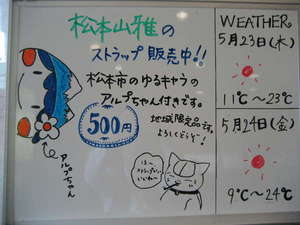 松本山雅の
ストラップ販売中!!
松本市のゆるキャラの
アルプちゃん付きです。
500円
地域限定品です。
よろしくどうぞ!
アルプちゃん
WEATHER。
5月23日(木)
11℃〜23℃
5月24日(金)
9℃〜24℃